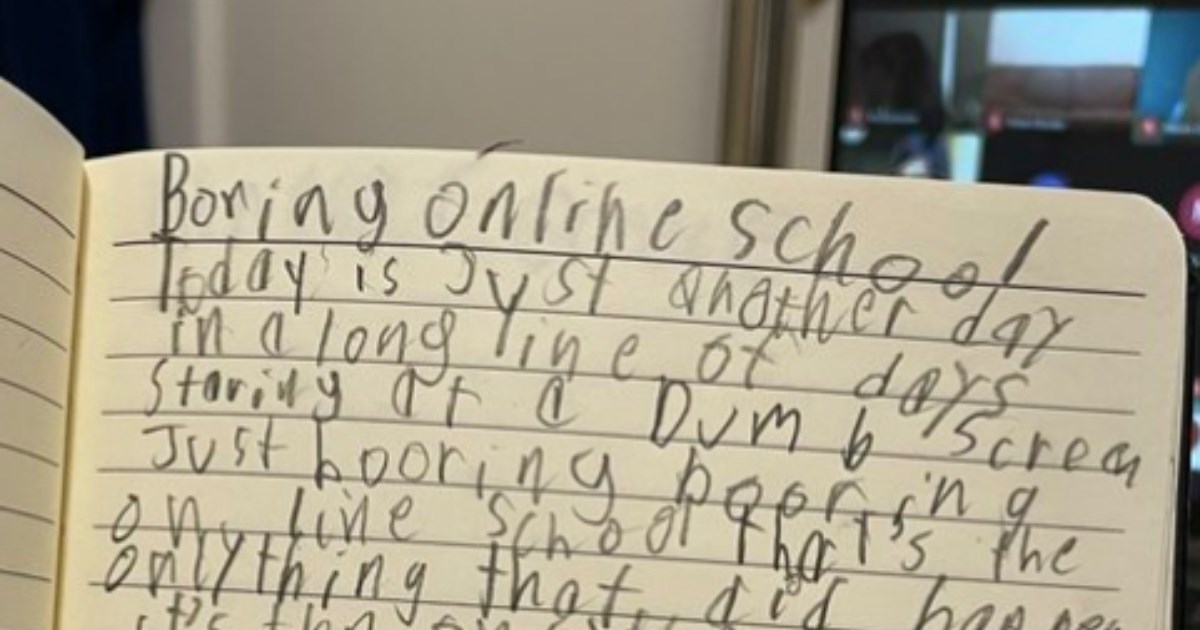 Boring online school
Today is Just another day
in a long line of days
Staring at a Dumb Screen
Just booring booring
on line School that's the
only thing that did happen
it's the